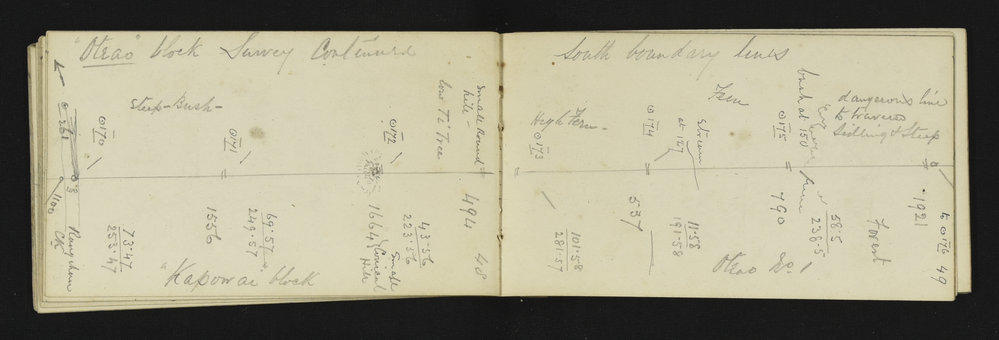 "Otrao" block Survey Continued
Steep-Bush-
⊙170
⊙171
⊙172
Small Round
hill-
low Ti Tree
⊙ 3
1100
73·47
253·47
69·57
249·57
1556
1664
Small
Conical
Hill
43·56
223·56
494
48
"Kapowai" block
South boundary lines
High Fern-
⊙173
⊙174
Stream
at 127
Fern
⊙175
bush at 150
dangerous line
to traverse
Sidling & Steep
101·58
281·57
537
11·58
191·58
790
58·5
238·5
Forest
1921
to ⊙176
49
Otrao No. 1